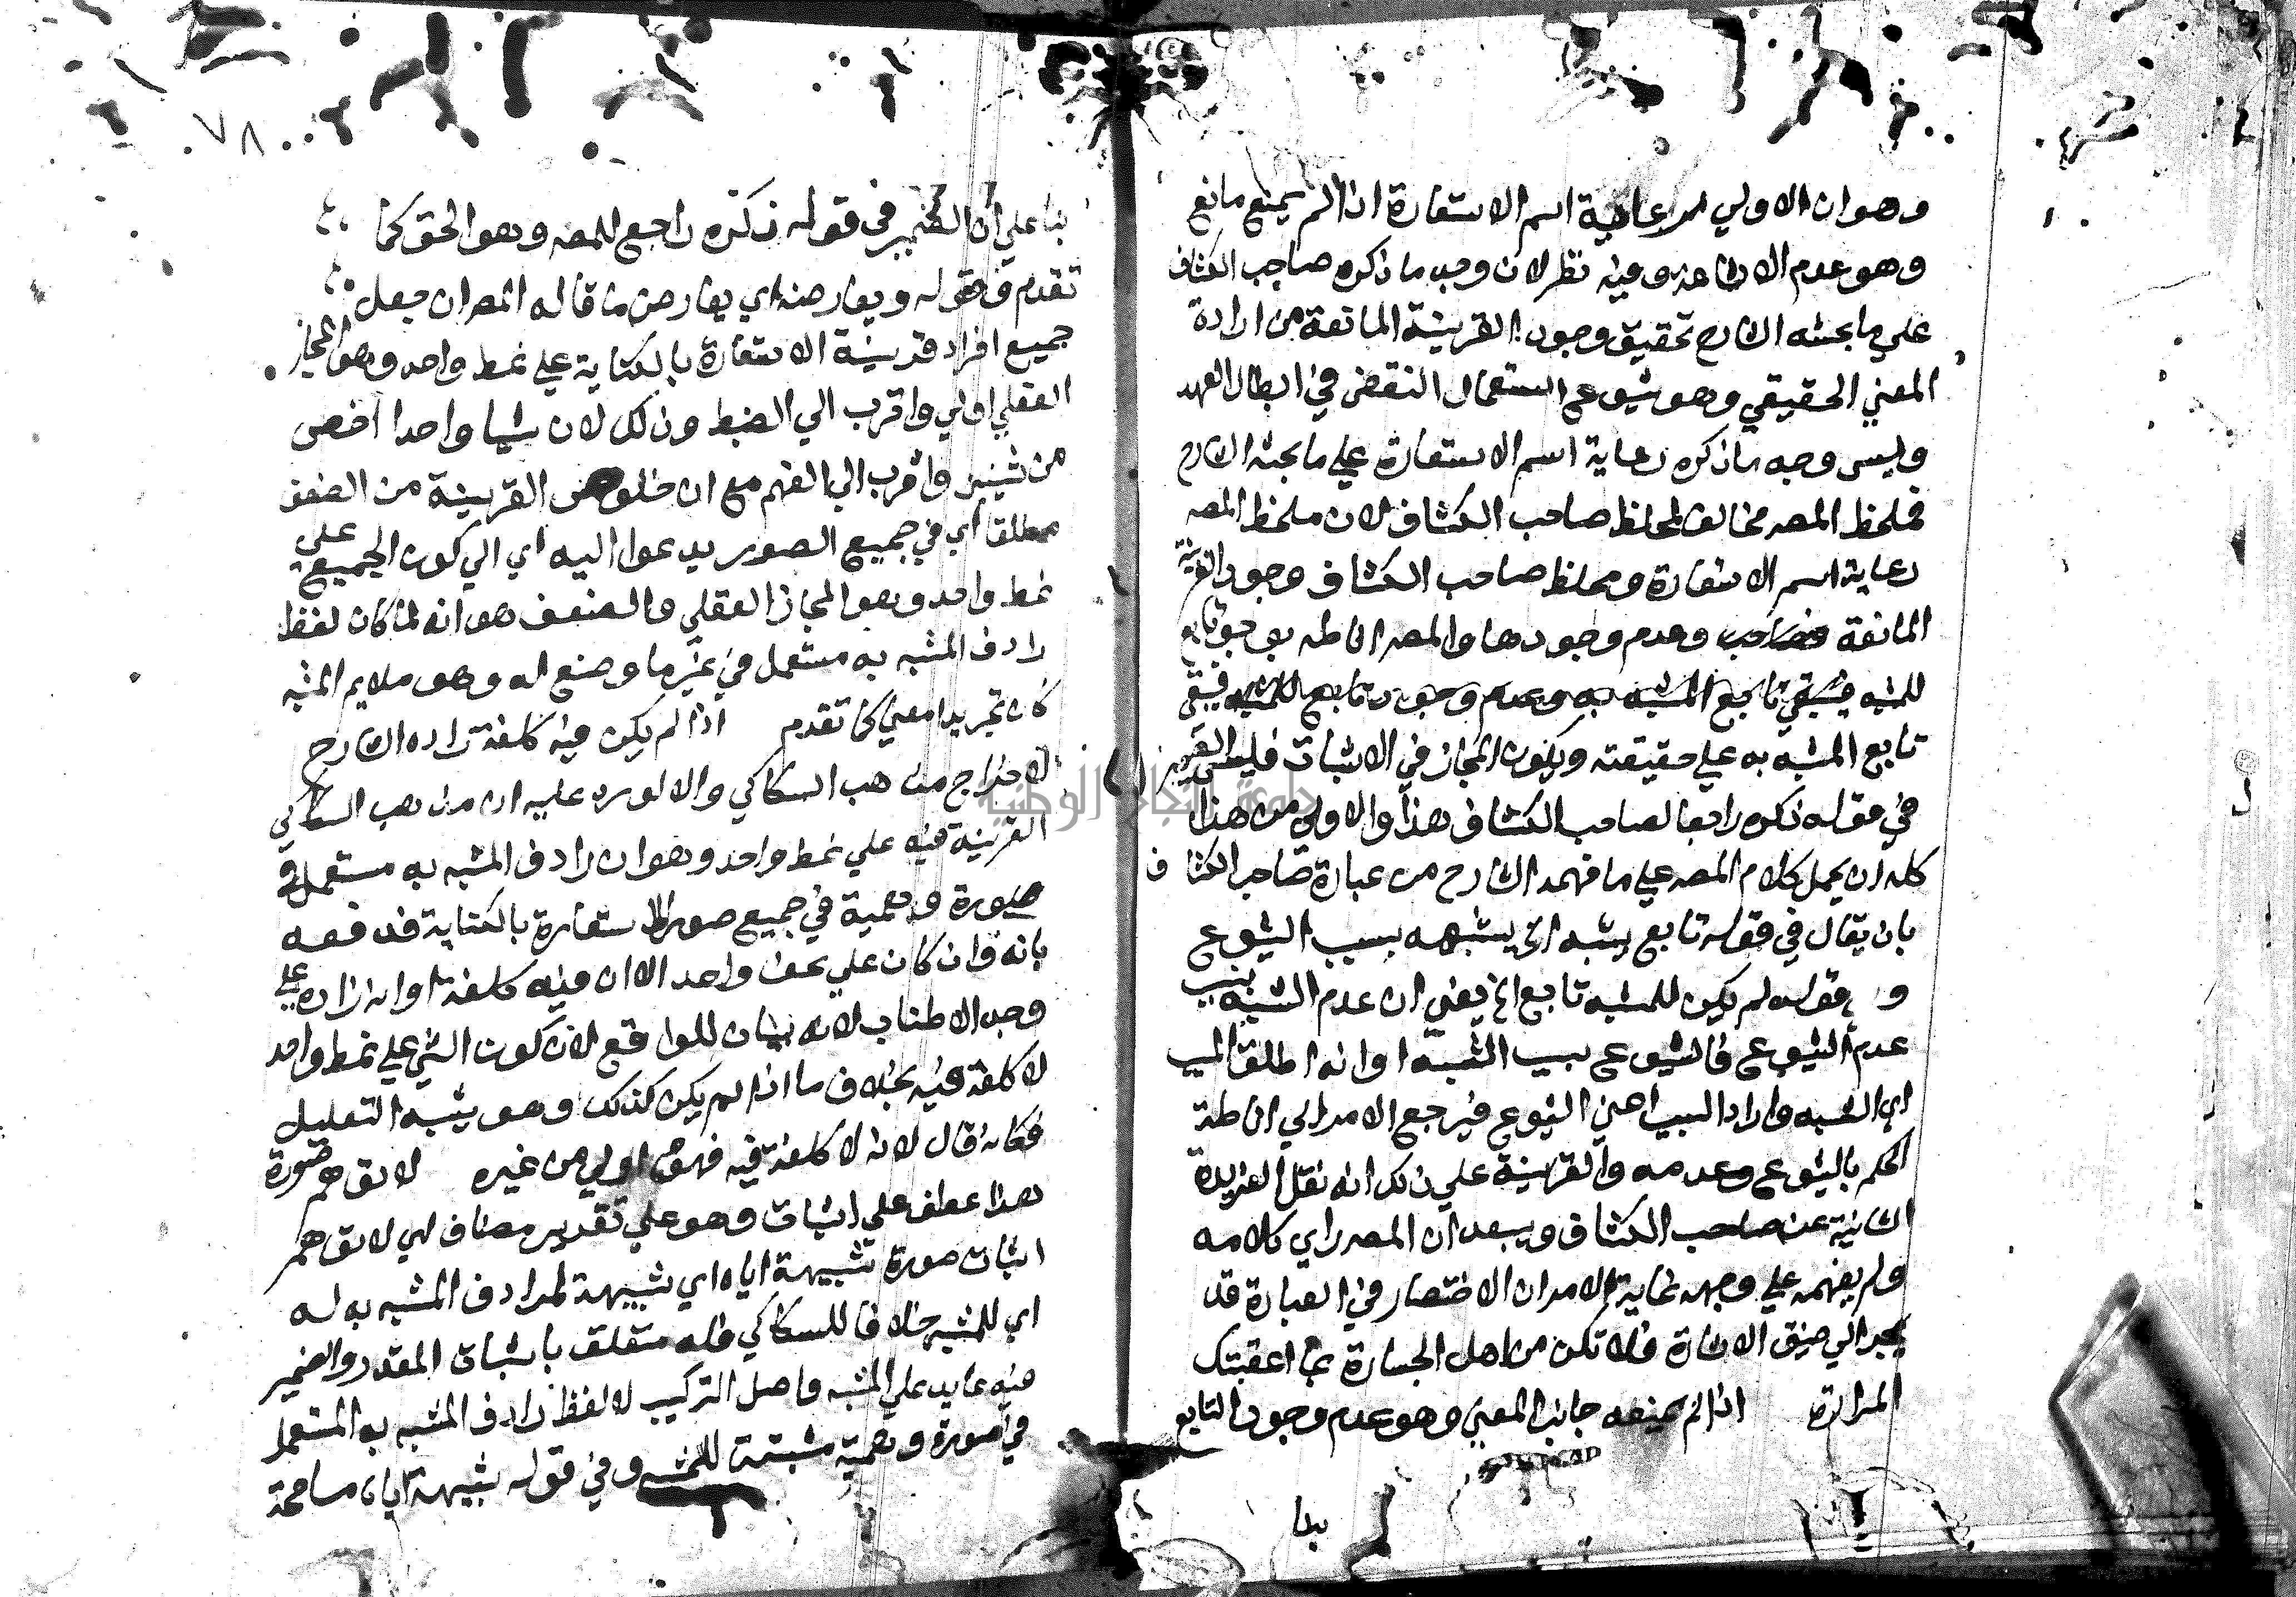 وهو ان الاولي رعاية اسم الاستعارة اذا لم يمنع مانع
وهو عدم الاشاعة وفيه نظر لان وجه ما ذكره صاحب الكشاف
علي ما بحثه الشارح تحقيق وجود القرينة المانعة من ارادة
المعني الحقيقي وهو شيوع استعمال النقض في ابطال العهد
وليس وجه ما ذكره رعاية اسم الاستعارة علي ما بحثه الشارح
فملحظ المصـ مخالف لملحظ صاحب الكشاف لان ملحظ المصـ
رعاية اسم الاستعارة وملحظ صاحب الكشاف وجود القرينة
المانعة وعدم وجودها والمصـ اناطه بوجود تابع
للمشبه فيبقي تابع المشبه به وعدم وجود تابع للمشبه فيبقي
تابع المشبه به علي حقيقته ويكون المجاز في الاثبات فليس الضمير
في قوله ذكره راجعا لصاحب الكشاف هذا والاولي من هذا
كله ان يحمل كلام المصـ علي ما فهمه الشارح من عبارة صاحب الكشاف
بان يقال في قوله تابع يشبه الخ يشبهه بسبب الشيوع
وقوله لم يكن للمشبه تابع الخ يعني ان عدم الشبه بسبب
عدم الشيوع فالشيوع سبب الشبه او انه اطلق المسبب
اي الشبه واراد السبب اعني الشيوع فيرجع الامر الي اناطة
الحكم بالشيوع وعدمه والقرينة علي ذلك انه نقل الفريدة
الثانية عن صاحب الكشاف ويبعد ان المصـ راي كلامه
ولم يفهمه علي وجهه غاية الامر ان الاختصار في العبارة قد
يجر الي ضيق الاشارة فلا تكن من اهل الجسارة
اذا لم يمنعه جانب المعني وهو عدم وجود التابع
بنا
٧٨
بنا علي ان الضمير في قوله ذكره راجع للمصـ وهو الحق كما
تقدم قوله ويعارضه اي يعارض ما قاله المصـ ان جعل
جميع افراد قرينة الاستعارة بالكناية علي نمط واحد وهو المجاز
العقلي اولي واقرب الي الضبط وذلك لان شيا واحدا اخصر
من شيئين واقرب الي الفهم مع ان خلوص القرينة من الضعف
مطلقا اي في جميع الصور يدعوا اليه اي الي كون الجميع علي
نمط واحد وهو المجاز العقلي والضعف هو انه لما كان لفظ
رادف المشبه به مستعمل في غير ما وضع له وهو ملايم المشبه
كان تجريدا معني كما تقدم اذا لم يكن فيه كلفة زاده الشارح
لاخراج مذهب السكاكي والا لورد عليه ان مذهب السكاكي
القرينة فيه علي نمط واحد وهو ان رادف المشبه به مستعمل في
صورة وهمية في جميع صور الاستعارة بالكناية فدفعه
بانه وان كان علي نمط واحد الا ان فيه كلفة او انه زاده علي
وجه الاطناب لانه بيان للواقع لان كون الشي علي نمط واحد
لا كلفة فيه بخلاف ما اذا لم يكن كذلك وهو يشبه التعليل
فكانه قال لانه لا كلفة فيه فهو اولي من غيره لا توهم صورة
هذا عطف علي اثبات وهو علي تقدير مضاف اي لا توهم
اثبات صورة شبيهة اياه اي شبيهة لمرادف المشبه به له
اي للمشبه خلافا للسكاكي فله متعلق باثبات المقدر والضمير
فيه عايد علي المشبه واصل التركيب لا لفظ رادف المشبه به المستعمل
في صورة وهمية مثبتة للمشبه وفي قوله شبيهة اياه مسامحة